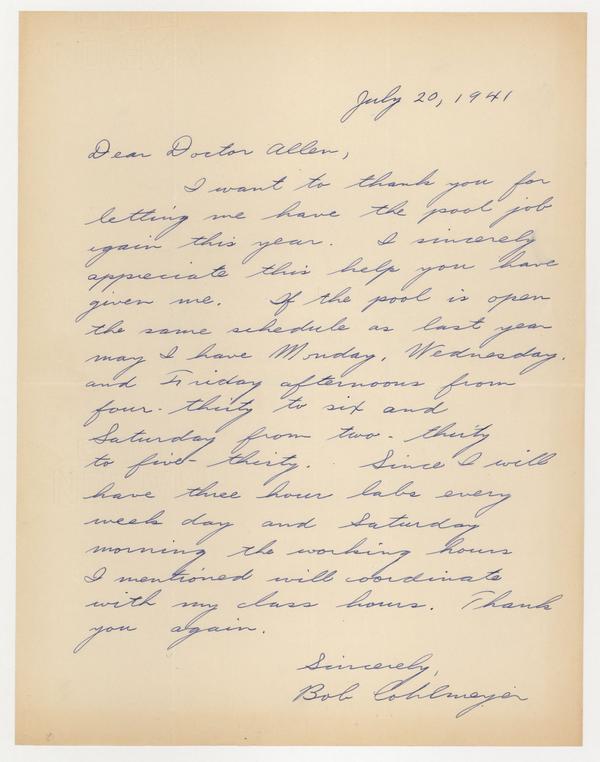 July 20, 1941
Dear Doctor Allen,
I want to thank you for
letting me have the pool job
again this year. I sincerely
appreciate this help you have
given me. If the pool is open
the same schedule as last year
may I have Monday, Wednesday,
and Friday afternoons from
four-thirty to six and
Saturday from two-thirty
to five-thirty. Since I will
have three hour labs every
week day and Saturday
morning the working hours
I mentioned will coordinate
with my class hours. Thank
you again.
Sincerely,
Bob Cohlmeyer